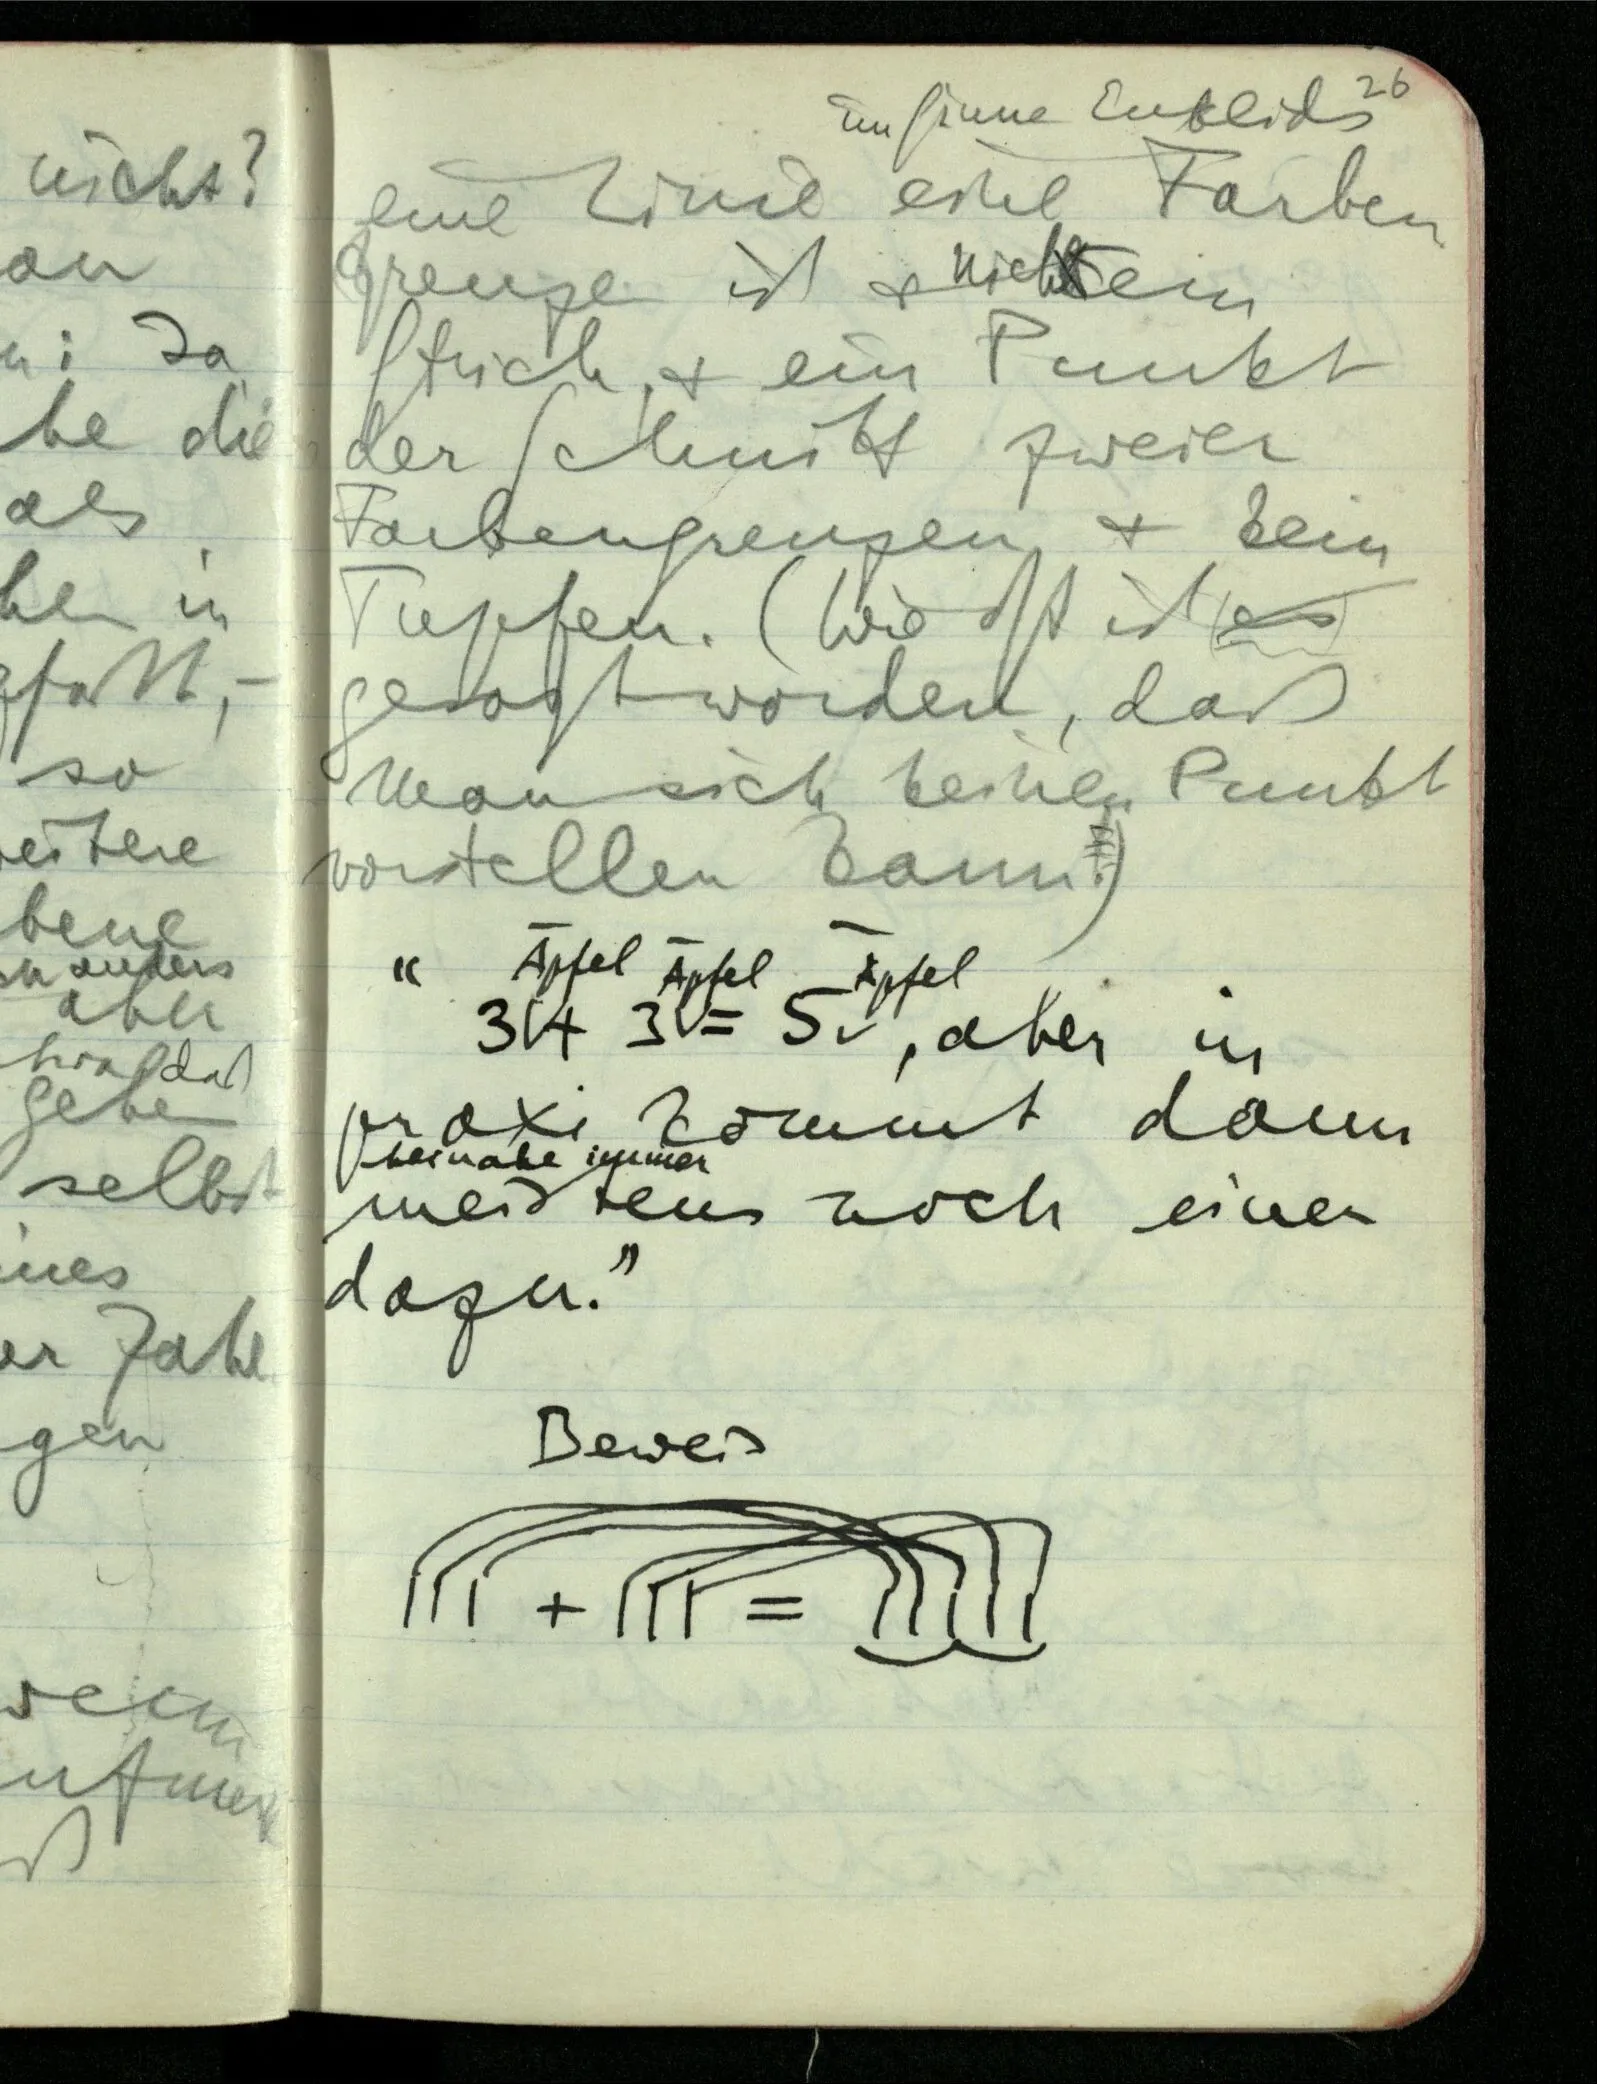 nicht?
an
Da
be die
als
hen in
so
weitere
bene
anders
aber
daß
geben
selbst
ines
er Zahl
gen
wenn
aufmerk
26
im Sinne Euklids
eine Linie eine Farben
grenze ist & nicht ein
Strich, & ein Punkt
der Schnitt zweier
Farbengrenzen & kein
Tupfen. (Wie oft ist es
gesagt worden, daß
man sich keinen Punkt
vorstellen kann!)
" Äpfel Äpfel Äpfel
3 + 3 = 5, aber in
praxi kommt dann
beinahe immer
meistens noch einer
dazu."
Beweis
||| + ||| = |||||